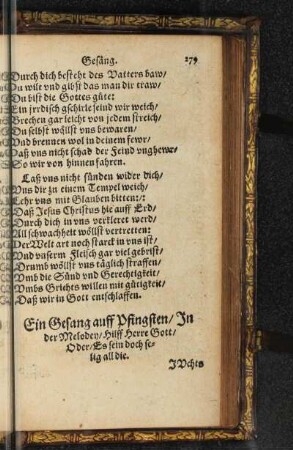 Gesäng. 279
Durch dich besteht des Vatters baw/
Du wilt vnd gibst das man dir traw/
Du bist die Gottes güte:
Ein jrrdisch gschirle seind wir weich/
Brechen gar leicht von jedem streich/
Du selbst wöllst vns bewaren/
Vnd brennen wol in deinem fewr/
Daß vns nicht schad der Feind vnghewr
So wir von hinnen fahren.
Laß vns nicht sünden wider dich/
Vns dir zu einem Tempel weich/
Lehr vns mit Glauben bitten:/:
Daß Jesus Christus hie auff Erd/
Durch dich in vns verkleret werd/
All schwachheit wöllst vertretten:
Der Welt art noch starck in vns ist/
Vnd vnserm Fleisch gar viel gebrist/
Drumb wöllst vns täglich straffen/
Vmb die Sünd vnd Gerechtigkeit/
Vmbs Grichts willen mit gütigkeit/
Daß wir in Gott entschlaffen.
Ein Gesang auff Pfingsten/ In
der Melodey/ Hilff Herre Gott/
Oder/ Es sein doch se-
lig all die.
JVchts